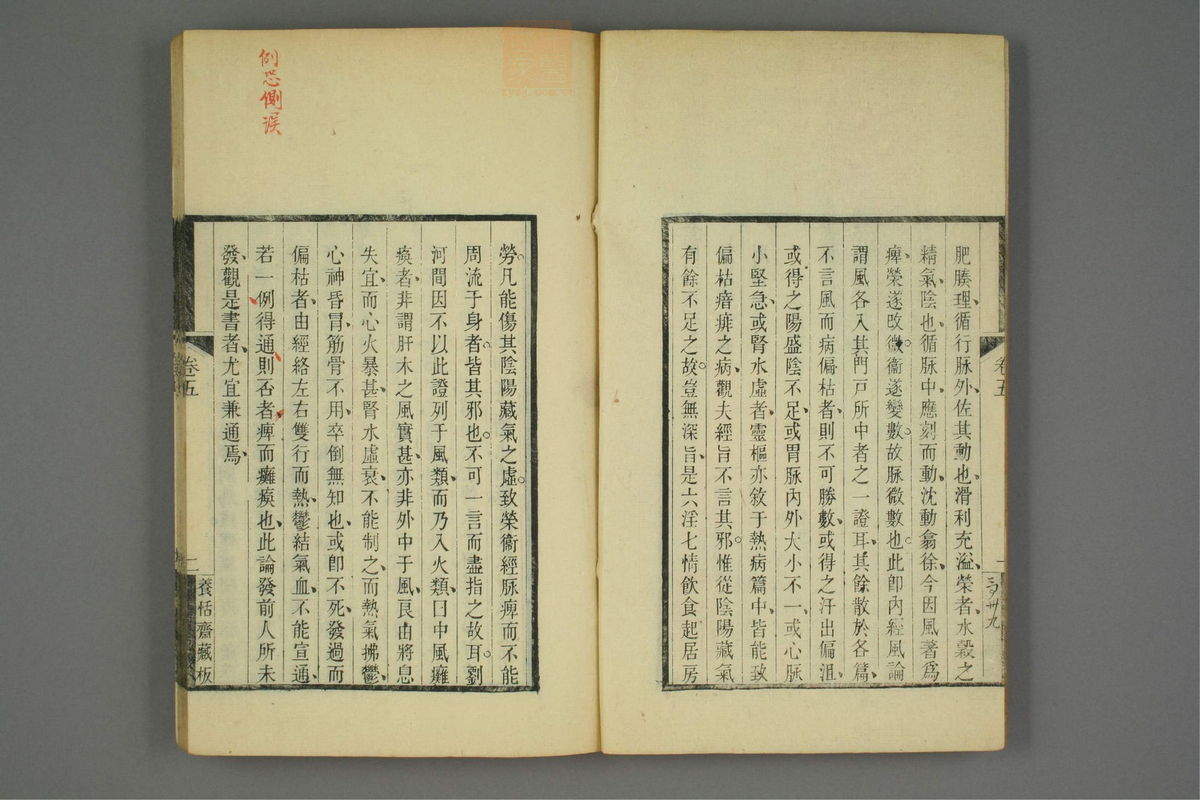 肥腠理循行脉外佐其動也滑利充溢榮者水榖之
精氣陰也循脉中應刻而動沈動翕徐今因風著爲
痺榮遂改微衞遂變數故脉微數也此卽内經風論
謂風各入其門戸所中者之一證耳其餘散於各篇
不言風而病偏枯者則不可勝數或得之汗出偏沮
或得之陽盛陰不足或胃脉内外大小不一或心脉
小堅急或腎水虛者靈樞亦敘于熱病篇中皆能致
偏枯瘖痱之病觀夫經旨不言其邪惟從陰陽藏氣
有餘不足之故豈無深旨是六淫七情飮食起居房
卷五
一
勞凡能傷其陰陽藏氣之虛致榮衞經脉痺而不能
周流于身者皆其邪也不可一言而盡指之故耳劉
河間因不以此證列于風類而乃入火類曰中風癱
瘓者非謂肝木之風實甚亦非外中于風良由將息
失宜而心火暴甚腎水虛衰不能制之而熱氣拂鬱
心神昏冒筋骨不用卒倒無知也或卽不死發過而
偏枯者由經絡左右雙行而熱鬱結氣血不能宣通
若一例得通則否者痺而癱瘓也此論發前人所未
發觀是書者尤宜兼通焉
卷五
二
養恬齋藏板
例恐側誤